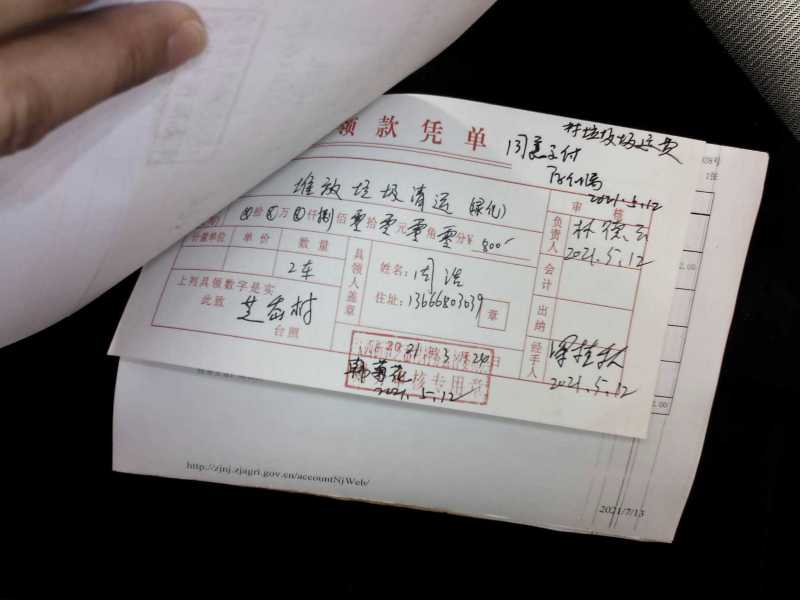 领款凭单
村垃圾场运费
同意支付
2021.5.12
08号
1张
堆放垃圾清运(绿化)
拾 万 仟捌佰零拾零元零角零分¥ 800
单价 数量
2车
上列具领数字是实
此致 芝 村
台照
具领人盖章
姓名:周浩
住址:13666803639
章
审核
负责人
林德
2021.5.12
会计
出纳
经手人
2021.5.12
2021 3 日
核专用章
韩菊花
2021.5.12
2.00
2.00
http://zjnj.zjagri.gov.cn/accountNjWeb/
2021/7/13